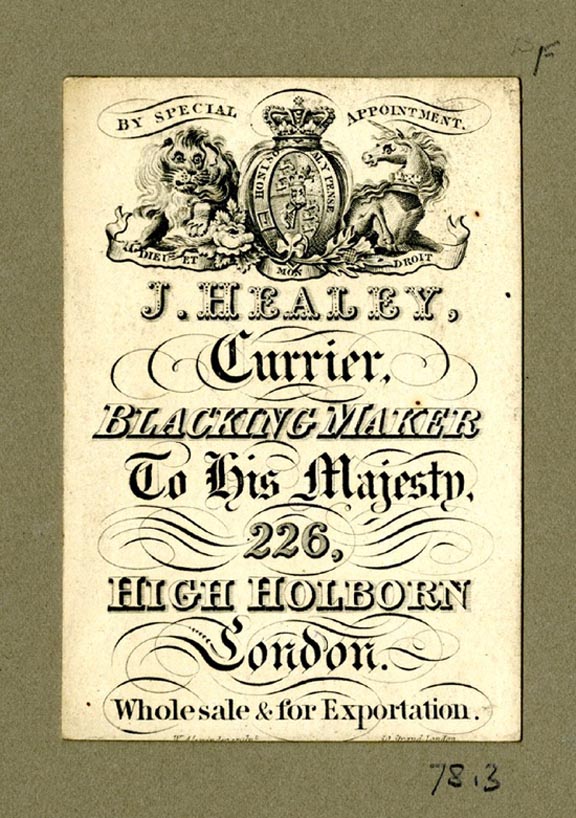 BY SPECIAL APPOINTMENT.
HONI SO ALY PENSE
DIEU ET MON DROIT
J. HEALEY,
Currier,
BLACKING MAKER
To His Majesty,
226,
HIGH HOLBORN
London.
Wholesale & for Exportation.
Strand London
78.3